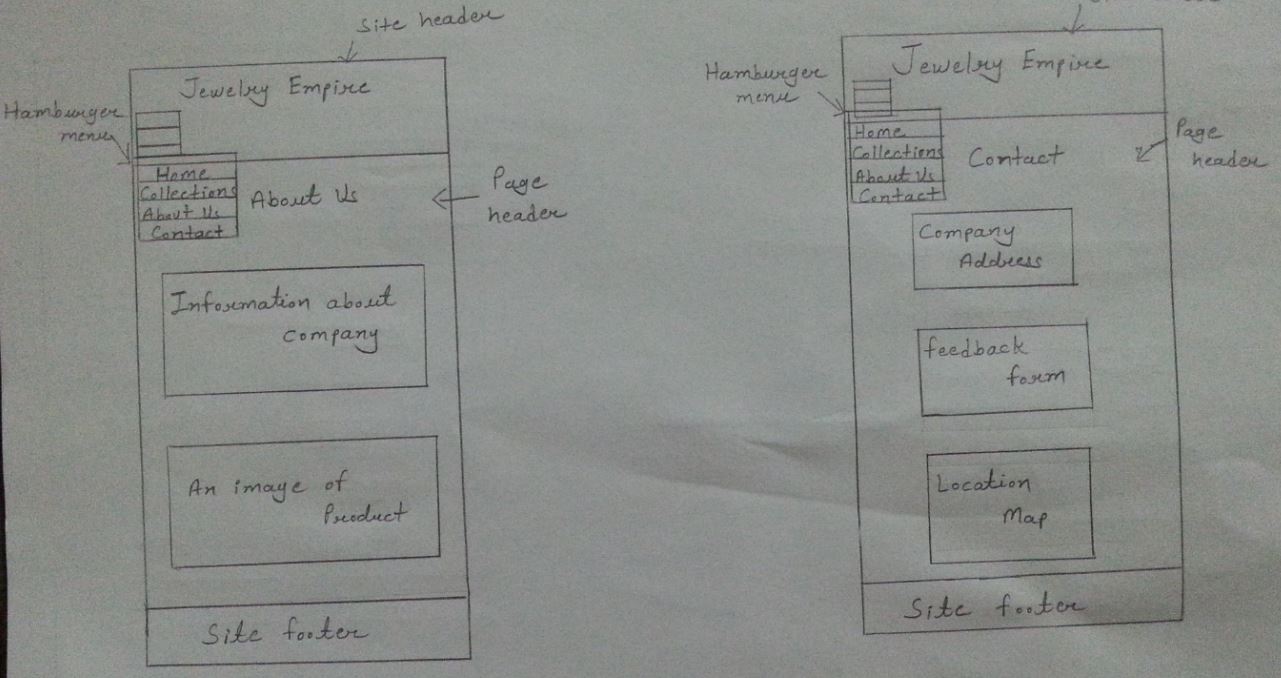 Site header
Jewelry Empire
Hamburger
menu
Home
Collections
About Us
Contact
About Us
Page
header
Information about
company
An image of
Product
Site footer
Jewelry Empire
Hamburger
menu
Home
Collections
About Us
Contact
Contact
Page
header
Company
Address
feedback
form
Location
Map
Site footer